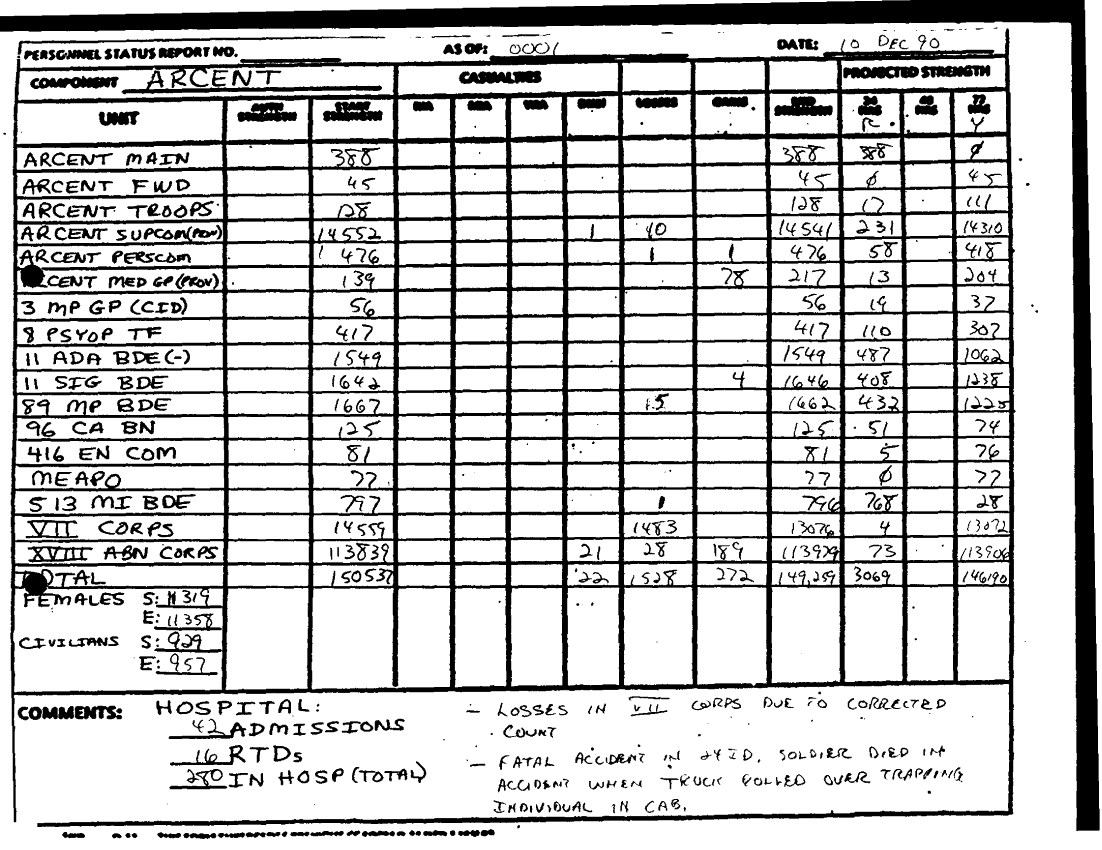 PERSONNEL STATUS REPORT NO. AS OF: 0001 DATE: 10 DEC 90
COMPONENT ARCENT CASUALTIES PROJECTED STRENGTH
UNIT STRENGTH START STRENGTH KIA WIA LOSSES GAINS END STRENGTH 24 HRS 48 HRS 72 HRS
R Y
ARCENT MAIN 388 388 388 ∅
ARCENT FWD 45 45 ∅ 45
ARCENT TROOPS 128 128 17 111
ARCENT SUPCOM(PROV) 14552 1 10 14541 231 14310
ARCENT PERSCOM 476 1 1 476 58 418
ARCENT MED GP (PROV) 139 78 217 13 204
3 MP GP (CID) 56 56 19 37
8 PSYOP TF 417 417 110 307
11 ADA BDE (-) 1549 1549 487 1062
11 SIG BDE 1642 4 1646 408 1238
89 MP BDE 1667 5 1662 432
96 CA BN 125 125 51 74
416 EN COM 81 81 5 76
MEAPO 77 77 ∅ 77
513 MI BDE 797 1 796 768 28
VII CORPS 14559 1483 13076 4 13072
XVIII ABN CORPS 113839 21 28 189 113979 73 113906
TOTAL 150537 22 1528 272 149,259 3069 146190
FEMALES S: 11319
E: 11358
CIVILIANS S: 929
E: 957
COMMENTS: HOSPITAL:
42 ADMISSIONS
16 RTDs
280 IN HOSP (TOTAL)
- LOSSES IN VII CORPS DUE TO CORRECTED
COUNT
- FATAL ACCIDENT IN 24 ID, SOLDIER DIED IN
ACCIDENT WHEN TRUCK ROLLED OVER TRAPPING
INDIVIDUAL IN CAB.